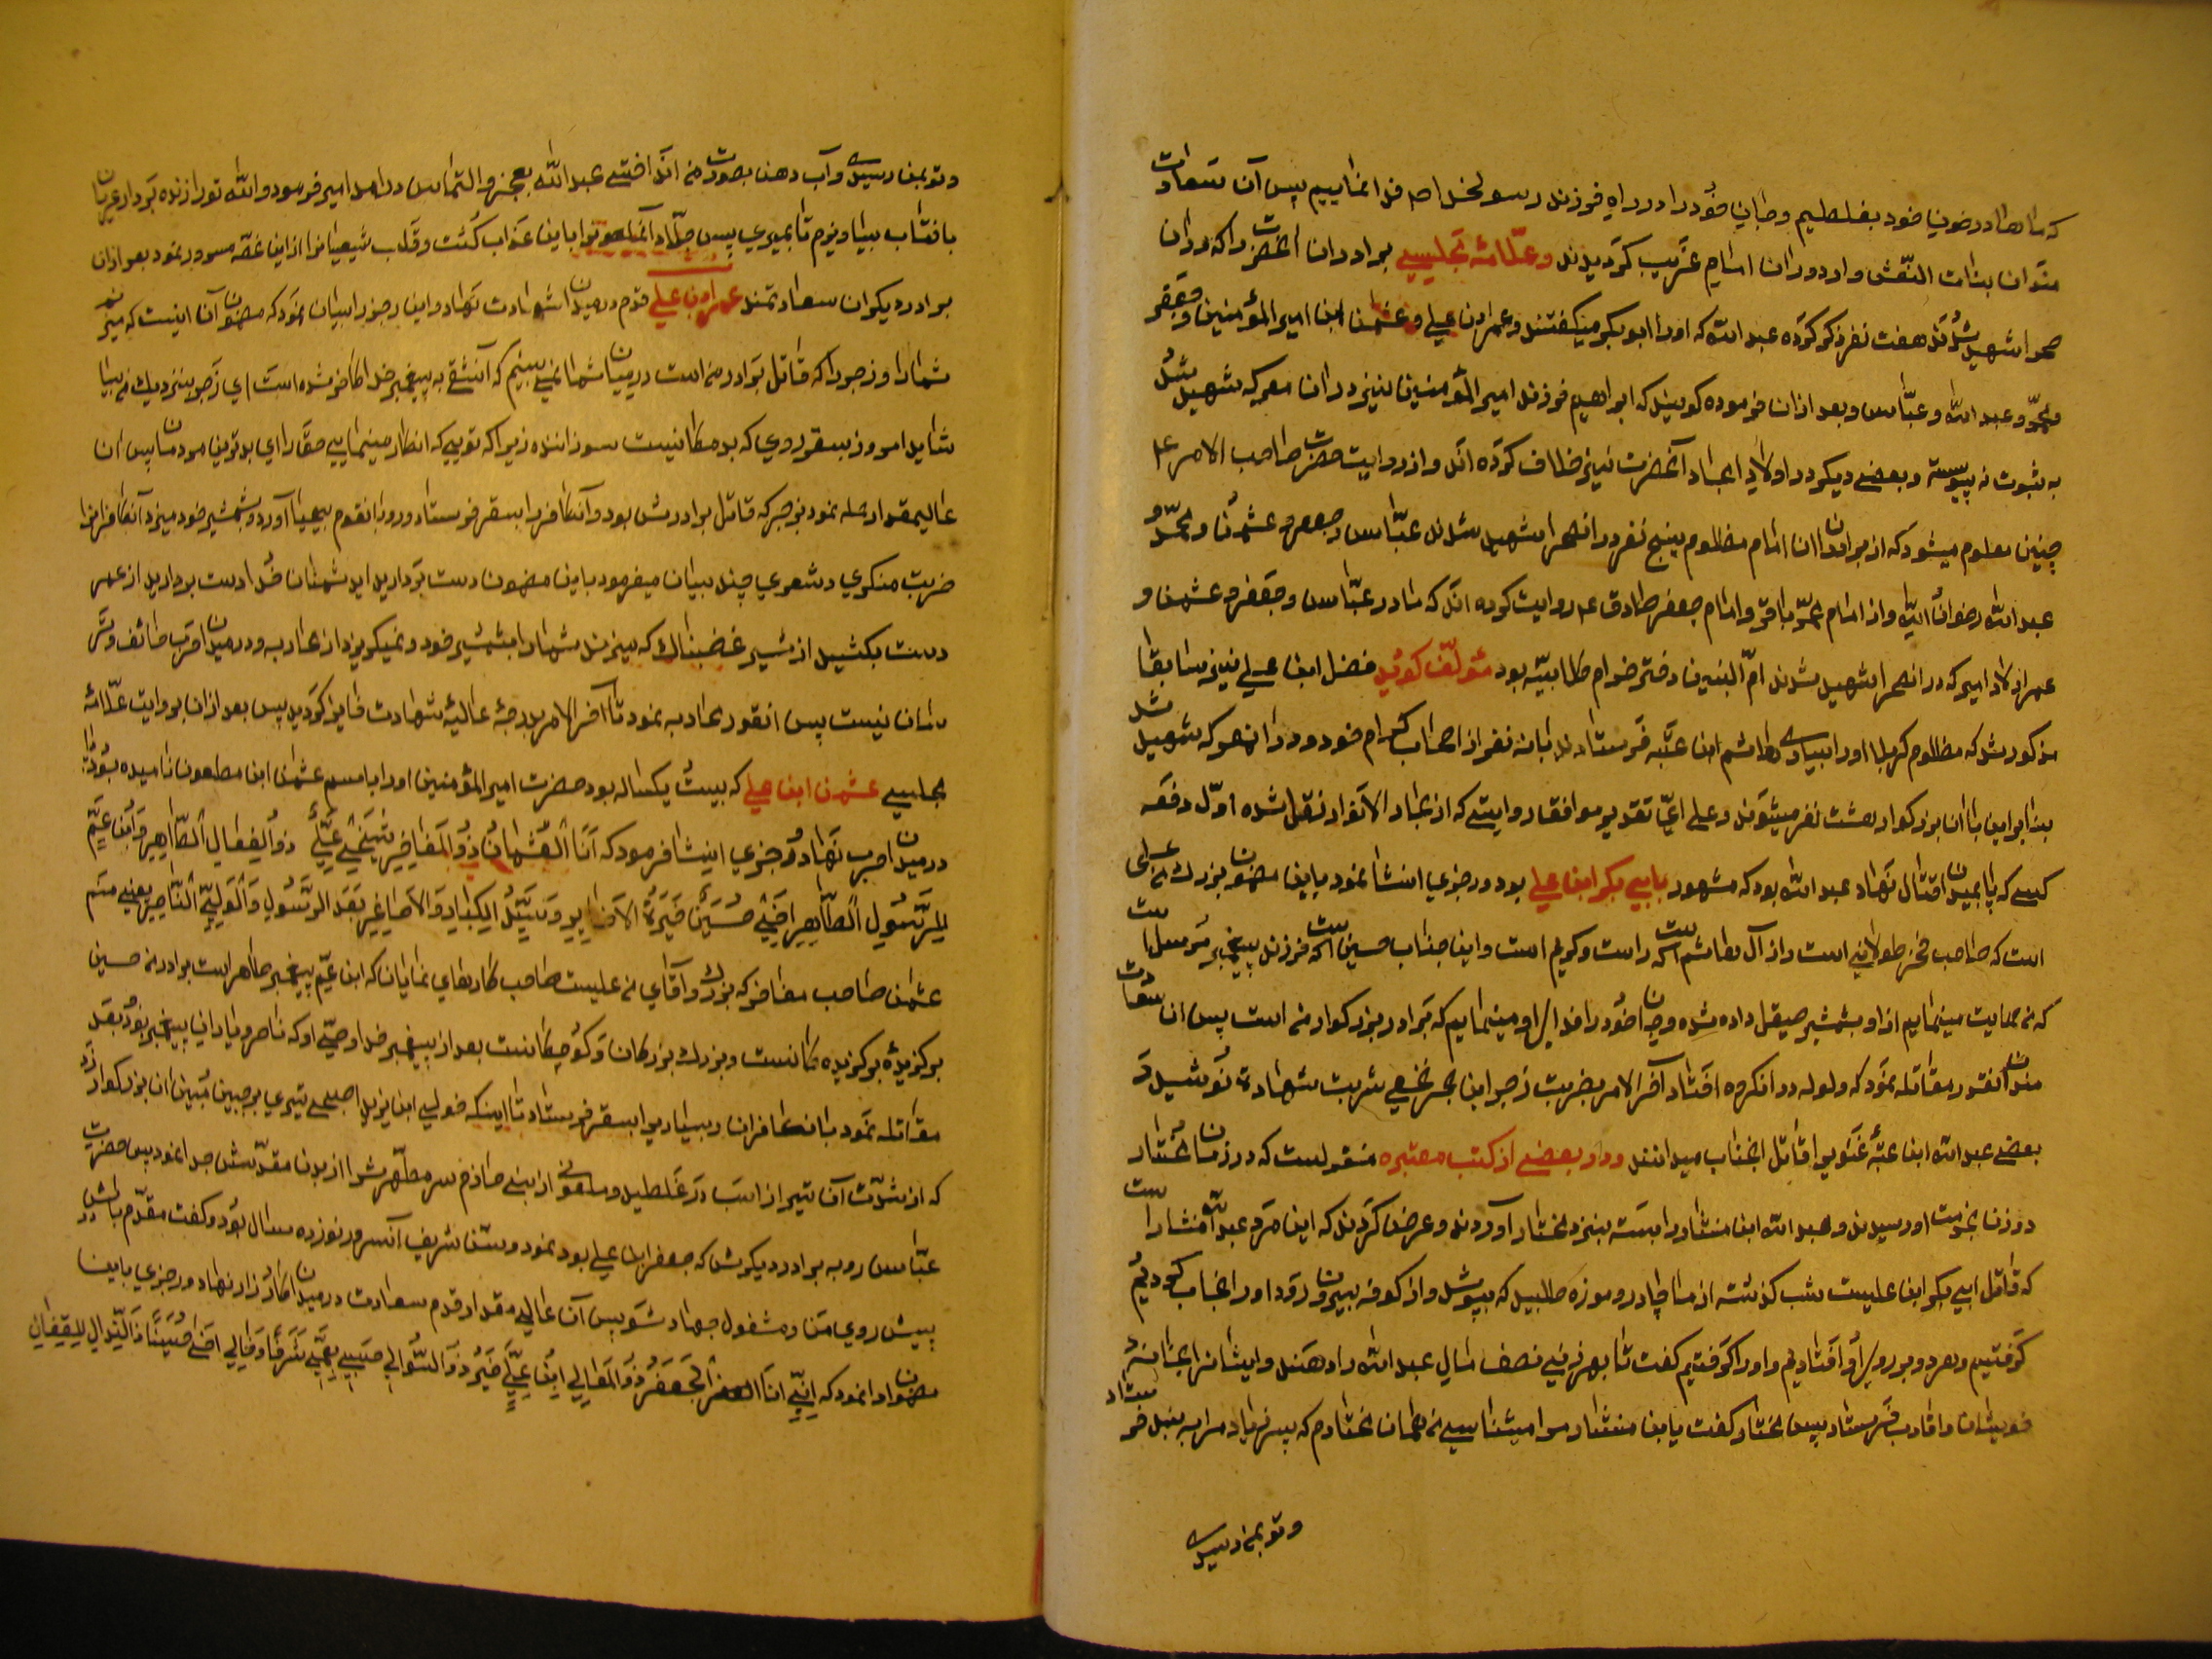 که ما ها در خون خود بغلطیم و جان خود را در راه فرزند رسولخدا ص فدا نماییم پس آن سعادت
مندان بنات النعش وار دوران امام غریب گردیدند و علّامهٔ مجلیسی برادران آنحضرت را که در آن
صحرا شهید شدند هفت نفر ذکر کرده عبد الله که او را ابو بکر میکفتند و عمر ابن علی و عثمن ابن امیر المؤمنین و جعفر
و محمّد و عبد الله و عبّاس و بعد ازان فرموده کویند که ابراهیم فرزند امیر المؤمنین نیز دران معرکه شهید شد
به ثبوت نه پیوسته و بعضی دیکر در اولاد امجاد آنحضرت نیز خلاف کرده اند و از روایت حضرت صاحب الامر ع
چنین معلوم میشود که از برادران امام مظلوم پنج نفر در انصحرا شهید شدند عبّاس و جعفر و عثمن و محمّد و
عبد الله رضوان الله و از امام محمّد باقر و امام جعفر صادق ع روایت کرده اند که مادر عبّاس و جعفر و عثمن و
عمر اولاد امیر که در انصحرا شهید شدند امّ البنین دختر خرام کلابیّه بود مؤلّف کوید فضل ابن علی نیز سابقا
مذکور شد که مظلوم کربلا او را بیاری هاشم ابن عتبه فرستادند با نه نفر از اصحاب کرام خود و در انمعرکه شهید شد
بنابراین با آن بزرکوار هشت نفر میشوند و علی ایّ تقدیر موافق روایتی که از بحار الانوار نقل شده اوّل دفعه
کسی که پا بمیدان قتال نهاد عبد الله بود که مشهور بابی بکر ابن علی بود و رجزی انشا نمود باین مضمون بزرک من علی
است که صاحب فخر طولانی است و از آل هاشم است که راست و کریم است و این جناب حسین است که فرزند پیغمبر مرسل است
که من حمایت مینمایم از او بشمشیر صیقل داده شده و جان خود را فدای او مینمایم که برادر بزرکوار من است پس ان سعادت
مند انقدر مقاتله نمود که ولوله در انکروه افتاد آخر الامر بضربت زجر ابن بحر نخعی شربت شهادت نوشید و
بعضی عبد الله ابن عتبهٔ غنوی را قاتل انجناب میدانند و در بعضی از کتب معتبره منقولست که در زمان مختار
دو زن بخدمت او رسیدند و عبد الله ابن منشار را بسته بنزد مختار آوردند و عرض کردند که این مرد عبد الله منشار است
که قاتل ابی بکر ابن علیست شب کذشته از ما چادر و موزه طلبید که بپوشد و از کوفه بیرون رود او را انجاب کردیم
کرفتیم و هر دو بر روی او افتادیم و او را کرفتیم کفت تا بهر زنی نصف مال عبد الله را دهند و ایشان را بخانهٔ
خویشان و اقارب فرستاد پس مختار کفت یابن منشار مرا میشناسی من همان مختارم که پسر زیاد مرا به بند فرستاد
و تو بمن رسیدی
و تو بمن رسیدی و آب دهن بصورت من انداختی عبد الله بعجز و التماس درامد امیر فرمود و الله تو را زنده بردار عریان
بافتاب بیاویزم تا بمیری پس جلّاد آنملعون را باین عذاب کشت و قلب شیعیان را ازین غصّه مسرور نمود بعد ازان
برادر دیکر ان سعادتمند عمر ابن علی قدم در میدان شهادت نهاد و این رجز را بیان نمود که مضمون آن اینست که میزنم
شما را و زجر را که قاتل برادر من است در میان شما نمی بینم که آنشقی به پیغمبر خدا کافر شده است ای زجر بنزدیک من بیا
شاید امروز بسقر روی که بد مکانیست سوزاننده زیرا که تویی که انکار مینمایی حق را ای بدترین مردمان پس ان
عالیمقدار حمله نمود بزجر که قاتل برادرش بود و آنکافر را بسقر فرستاد و رو بانقوم بیحیا آورد و بشمشیر خود میزد آنکافران را
ضربت منکری و شعری چند بیان میفرمود باین مضمون دست بردارید اید شمنان خدا دست بردارید از عمر
دست بکشید از شیر غضبناک که میزند شما را بشمشیر خود و نمیکریزد از محاربه و در میدان حرب خائف و ترسان
نیست پس انقدر محاربه نمود تا آخر الامر بدرجهٔ عالیهٔ شهادت فایز کردید پس بعد ازان بروایت علّامهٔ
مجلسی عثمن ابن علی که بیست یکساله بود حضرت امیر المؤمنین او را باسم عثمن ابن مظعون نامیده بود پا
در میدان حرب نهاد و رجزی اینشا فرمود که اَنَا الْعُثْمانُ ذُو الْمَفاخِرِ شَیْخی عَلیٌّ ذو الفعال الطّاهِرِ وَابْنُ عَمٍّ
لِلرَّسُولِ الطّاهِرِ اَخی حُسَیْنٌ خَیْرَةُ الاَخایِرِ وَسَیِّدُ الکِبارِ وَالاَصاغِرِ بَعْدَ الرَّسُولِ وَالْوَلِیِّ النّاصِرِ یعنی منم
عثمن صاحب مفاخر که بزرک و آقای من علیست صاحب کارهای نمایان که ابن عمّ پیغمبر طاهر است برادر من حسین
برکزیدهٔ برکزیده کانست و بزرک بزرکان و کوچکانست بعد از پیغمبر خدا و وصیّ او که ناصر و یاران پیغمبر بود بقدر
مقاتله نمود با نکافران و بسیار یرا بسقر فرستاد تا اینکه خولی ابن یزید اصبحی تیری بر جبین مبین ان بزرکوار زد
که از شدّت آن تیر از اسب در غلطید و ملعونی از بنی حازم سر مطهّرش را از بدن مقدّسش جدا نمود پس حضرت
عبّاس رو به برادر دیکرش که جعفر ابن علی بود نمود و سنّ شریف آنسرور نوزده سال بود و کفت مقدّم باش در
پیش روی من و مشغول جهاد شو پس آن عالی مقدار قدم سعادت در میدان کارزار نهاد و رجزی باین
مضمون ادا نمود که اِنّی اَنَا الْجَعْفَرُ ذُو الْمَعالی اِبْنُ عَلِیٍّ خَیْرُ ذُو النَّوالِ حَسْبی بِعَمّی شَرَفاً وَخالی اَحْمی حُسَیْناً ذَا النَّدی المِفْضالِ